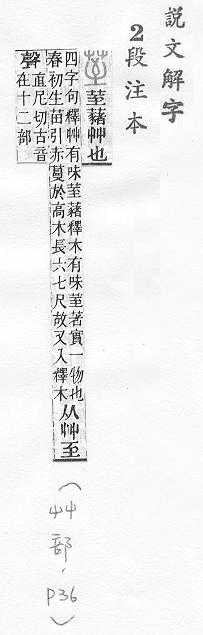 說文解字
2段注本
荎藸艸也
四字句釋艸有味荎藸釋木有味荎著實一物也
春初生苗引赤蔓於高木長六七尺故又入釋木
从艸至
聲
直尼切古音
在十二部
(艸部，P36)